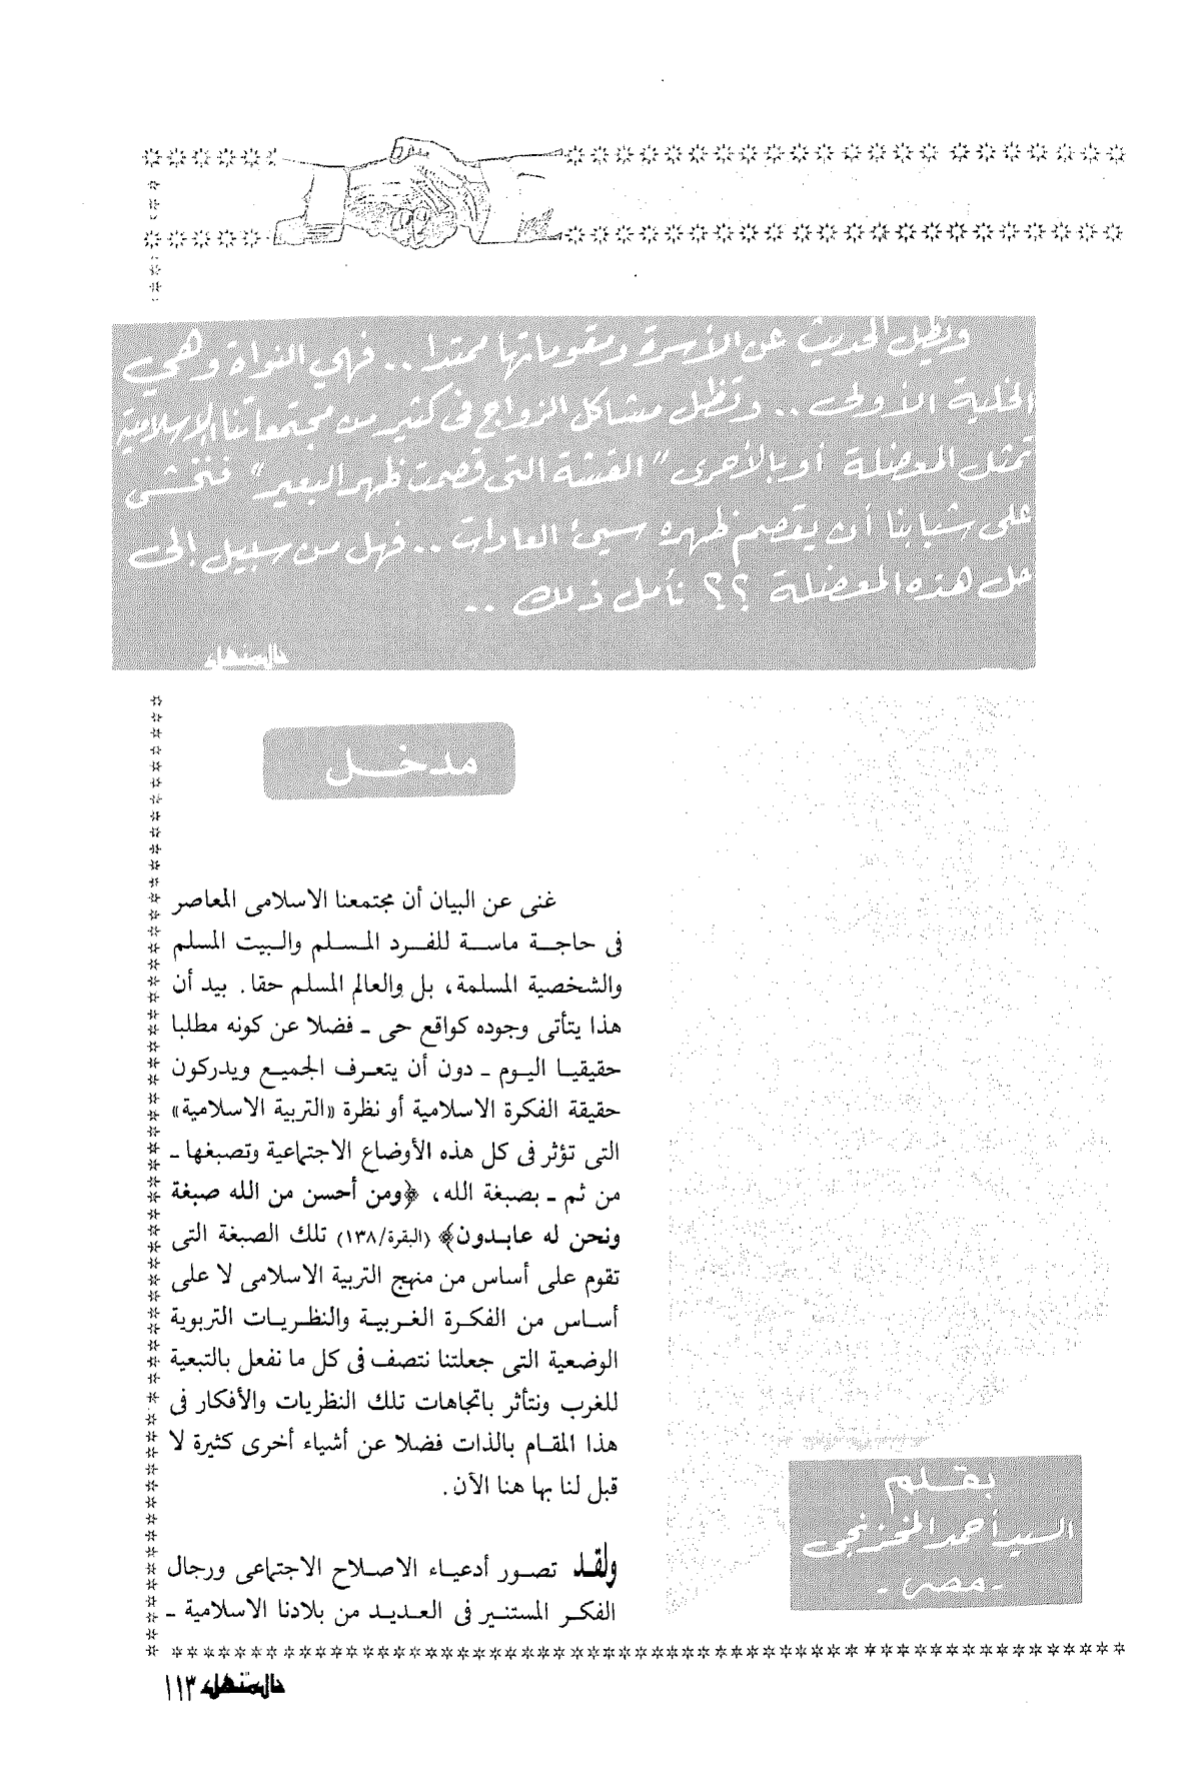 ويظل الحديث عن الأسرة ومقوماتها ممتدا .. فهي النواة وهي
الخلية الأولى .. وتظل مشاكل الزواج فى كثير من مجتمعاتنا الإسلامية
تمثل المعضلة أو بالأحرى "القشة التى قصمت ظهر البعير" فنخشى
على شبابنا أن يقصم ظهره سيئ العادات .. فهل من سبيل إلى
حل هذه المعضلة ؟؟ نأمل ذلك ..
المنهل
مدخل
غنى عن البيان أن مجتمعنا الاسلامى المعاصر
فى حاجة ماسة للفرد المسلم والبيت المسلم
والشخصية المسلمة، بل والعالم المسلم حقا. بيد أن
هذا يتأتى وجوده كواقع حى ـ فضلا عن كونه مطلبا
حقيقيا اليوم ـ دون أن يتعرف الجميع ويدركون
حقيقة الفكرة الاسلامية أو نظرة «التربية الاسلامية»
التى تؤثر فى كل هذه الأوضاع الاجتماعية وتصبغها ـ
من ثم ـ بصبغة الله، ﴿ومن أحسن من الله صبغة
ونحن له عابدون﴾ (البقرة/١٣٨) تلك الصبغة التى
تقوم على أساس من منهج التربية الاسلامى لا على
أساس من الفكرة الغربية والنظريات التربوية
الوضعية التى جعلتنا نتصف فى كل ما نفعل بالتبعية
للغرب ونتأثر باتجاهات تلك النظريات والأفكار فى
هذا المقام بالذات فضلا عن أشياء أخرى كثيرة لا
قبل لنا بها هنا الآن.
ولقد تصور أدعياء الاصلاح الاجتماعى ورجال
الفكر المستنير فى العديد من بلادنا الاسلامية ـ
بقلم
السيد أحمد المخزنجى
- مصر -
المنهل ١١٣